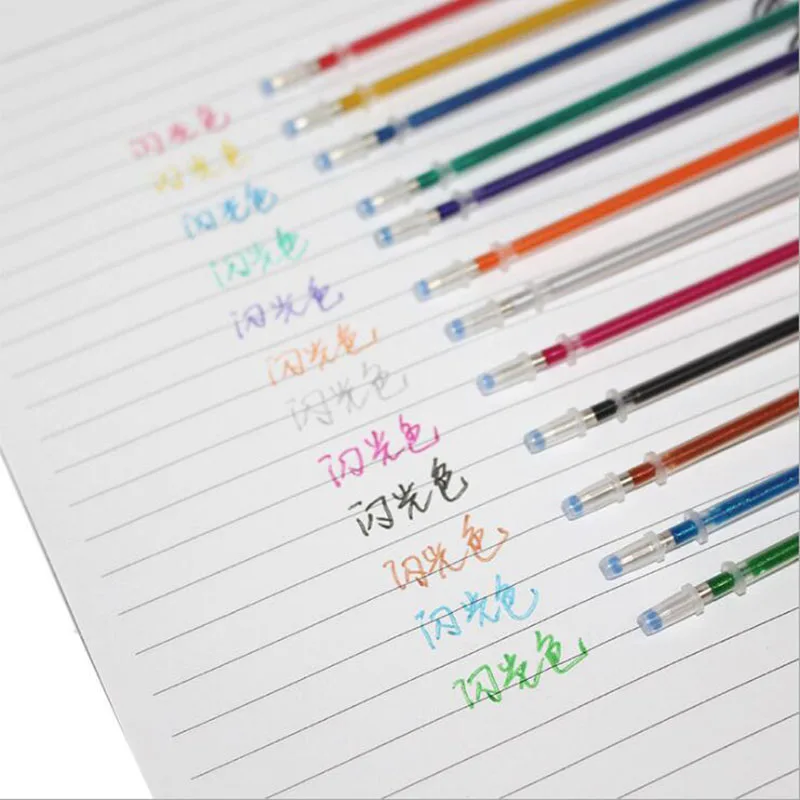 闪光色
闪光色
闪光色
闪光色
闪光色
闪光色
闪光色
闪光色
闪光色
闪光色
闪光色
闪光色